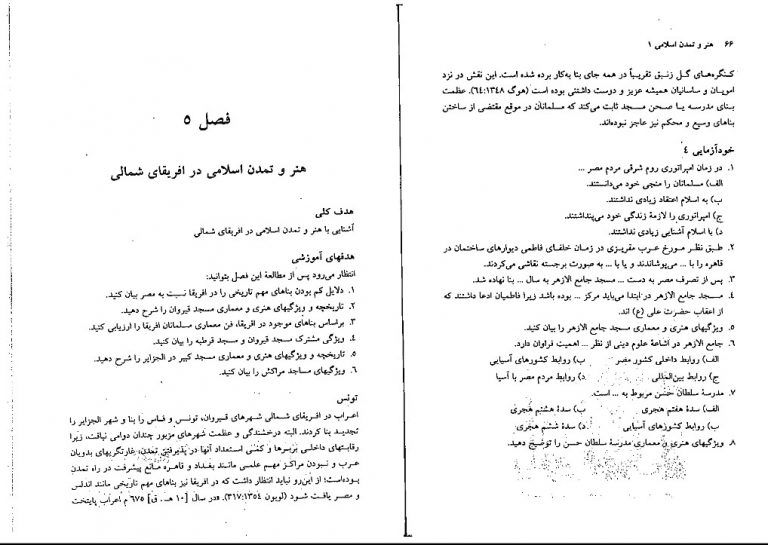 ۶۶ هنر و تمدن اسلامی ۱
کنگره‌های گل زنبق تقریباً در همه جای بنا به‌کار برده شده است. این نقش در نزد
امویان و ساسانیان همیشه عزیز و دوست داشتنی بوده است (هوگ ۶۴:۱۳۴۸). عظمت
بنای مدرسه یا صحن مسجد ثابت می‌کند که مسلمانان در موقع مقتضی از ساختن
بناهای وسیع و محکم نیز عاجز نبوده‌اند.
خودآزمایی ۴
۱. در زمان امپراتوری روم شرقی مردم مصر ...
الف) مسلمانان را منجی خود می‌دانستند.
ب) به اسلام اعتقاد زیادی نداشتند.
ج) امپراتوری را لازمهٔ زندگی خود می‌پنداشتند.
د) با اسلام آشنایی زیادی نداشتند.
۲. طبق نظر مورخ عرب مقریزی در زمان خلفای فاطمی دیوارهای ساختمان در
قاهره را با ... می‌پوشاندند و یا با ... به صورت برجسته نقاشی می‌کردند.
۳. پس از تصرف مصر به دست ... مسجد جامع الازهر به سال ... بنا نهاده شد.
۴. مسجد جامع الازهر در ابتدا می‌باید مرکز ... بوده باشد زیرا فاطمیان ادعا داشتند که
از اعقاب حضرت علی (ع) اند.
۵. ویژگیهای هنری و معماری مسجد جامع الازهر را بیان کنید.
۶. جامع الازهر در اشاعهٔ علوم دینی از نظر ... اهمیت فراوان دارد.
الف) روابط داخلی کشور مصر ب) روابط کشورهای آسیایی
ج) روابط بین‌المللی د) روابط مردم مصر با آسیا
۷. مدرسهٔ سلطان حسن مربوط به ... است.
الف) سدهٔ هفتم هجری ب) سدهٔ هشتم هجری
ب) روابط کشورهای آسیایی د) سدهٔ ششم هجری
۸. ویژگیهای هنری و معماری مدرسهٔ سلطان حسن را توضیح دهید.
فصل ۵
هنر و تمدن اسلامی در افریقای شمالی
هدف کلی
آشنایی با هنر و تمدن اسلامی در افریقای شمالی
هدفهای آموزشی
انتظار می‌رود پس از مطالعهٔ این فصل بتوانید:
۱. دلایل کم بودن بناهای مهم تاریخی را در افریقا نسبت به مصر بیان کنید.
۲. تاریخچه و ویژگیهای هنری و معماری مسجد قیروان را شرح دهید.
۳. براساس بناهای موجود در افریقا، فن معماری مسلمانان افریقا را ارزیابی کنید.
۴. ویژگی مشترک مسجد قیروان و مسجد قرطبه را بیان کنید.
۵. تاریخچه و ویژگیهای هنری و معماری مسجد کبیر در الجزایر را شرح دهید.
۶. ویژگیهای مساجد مراکش را بیان کنید.
تونس
اعراب در افریقای شمالی شهرهای قیروان، تونس، و فاس را بنا و شهر الجزایر را
تجدید بنا کردند. البته درخشندگی و عظمت شهرهای مزبور چندان دوامی نیافت، زیرا
رقابتهای داخلی بربرها و کمی استعداد آنها در پذیرفتن تمدن، غارتگریهای بدویان
عرب و نبودن مراکز مهم علمی مانند بغداد و قاهره مانع پیشرفت در راه تمدن
بوده‌است؛ از این‌رو نباید انتظار داشت که در افریقا نیز بناهای مهم تاریخی مانند اندلس
و مصر یافت شود (لوبون ۳۱۷:۱۳۵۴). «در سال [۱۰ هـ. ق] ۶۷۵ م اعراب پایتخت